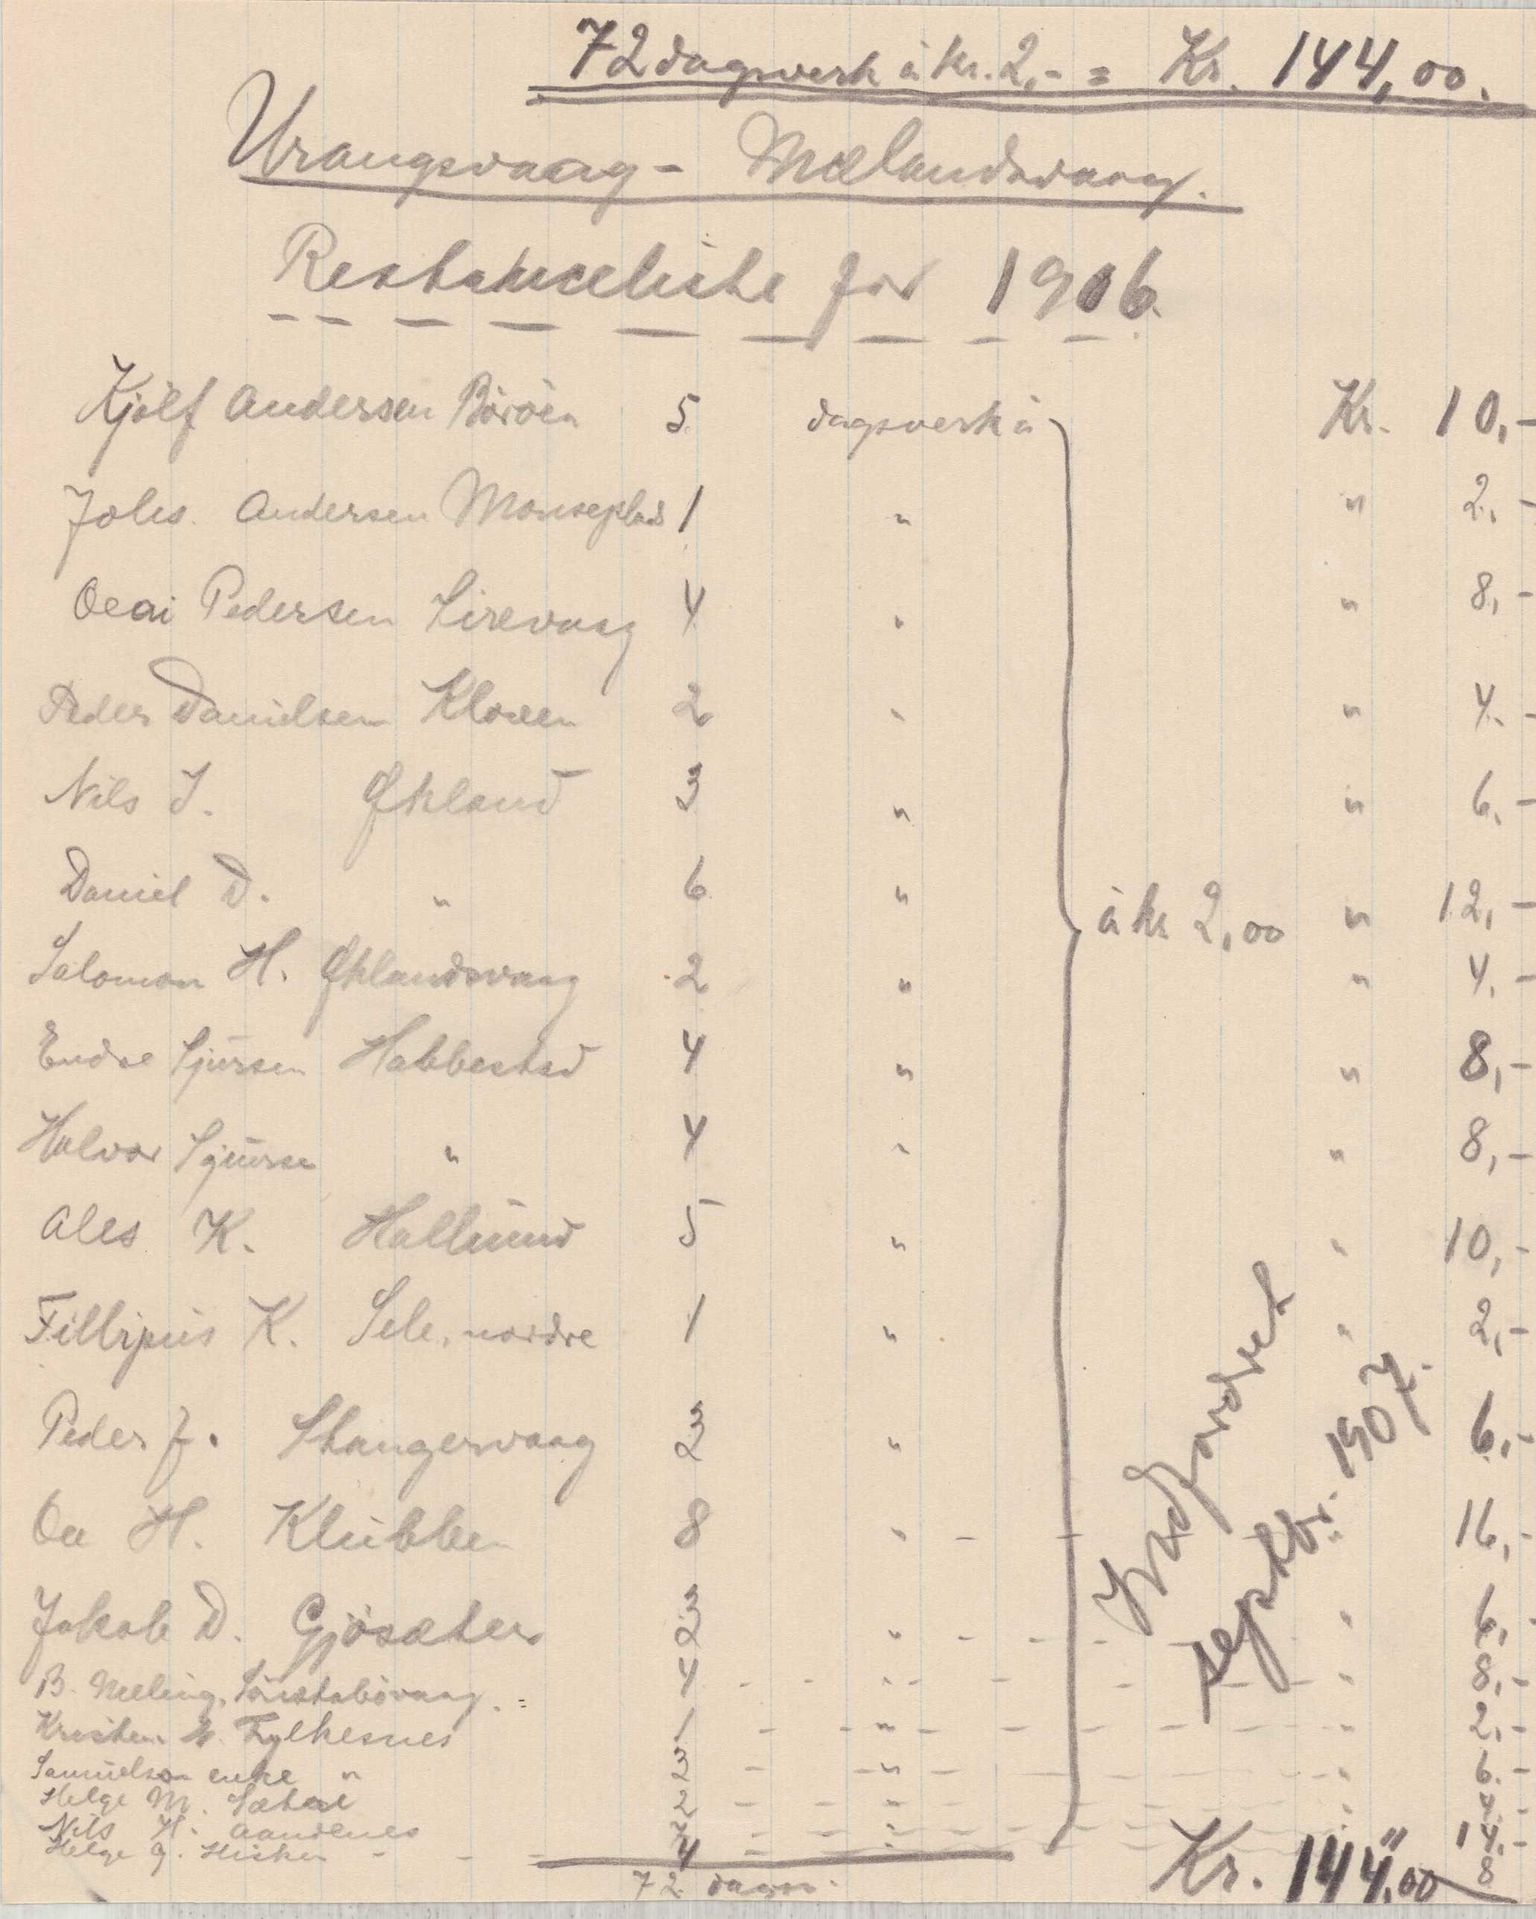 72 dagsverk à kr. 2,- = Kr. 144,00.
Urangsvaag - Mælandsvaag.
Restanceliste for 1906.
Kjølf Andersen Börøen 5 dagsverk à Kr. 10,-
Johs. Andersen Monseplads 1 " " 2,-
Pedersen Sirevaag 4 " " 8,-
Peder Danielsen Kloven 2 " " 4,-
Nils J. Økland 3 " " 6,-
Daniel D. " 6 " à kr 2,00 " 12,-
Salomon H. Øklandsvaag 2 " " 4,-
Endre Sjursen Habbestad 4 " " 8,-
Halvor Sjursen " 4 " " 8,-
Ales K. Hallund 5 " " 10,-
Fillipus K. Sele, nordre 1 " " 2,-
Peder J. Stangervaag 3 " " 6,-
H. Klubben 8 " " 16,-
Jakob D. Gjøsæter 3 " " 6,-
B. Meling, 4 " " 8,-
Kristen M. Fylkesnes 1 " " 2,-
Samuelson enke " 3 " " 6,-
Helge M. 2 " " 4,-
Nils H. Aandenes " " 14,-
Helge J. 4 8
72 dagsv. Kr. 144,00
Indfordret
septbr. 1907.